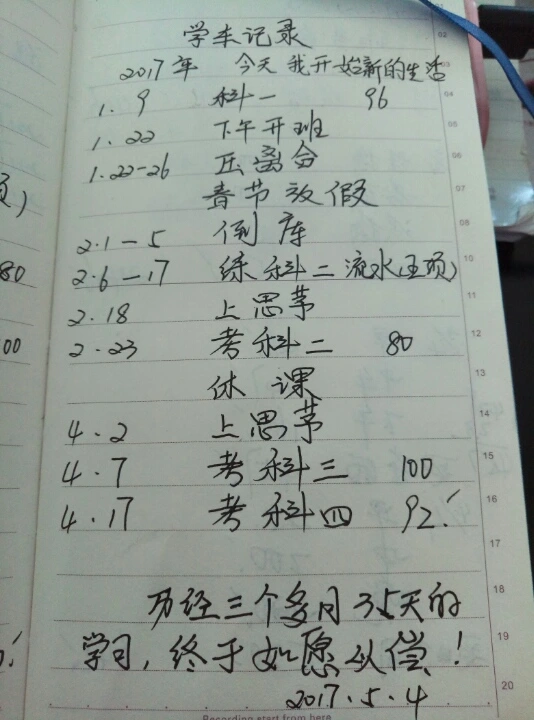 学车记录
2017年 今天我开始新的生活
1.9 科一 96
1.22 下午开班
1.22-26 压离合
春节放假
2.1-5 倒库
2.6-17 练科二流水(五项)
2.18 上思茅
2.23 考科二 80
休课
4.2 上思茅
4.7 考科三 100
4.17 考科四 92!
历经三个多月35天的
学习,终于如愿以偿!
2017.5.4
Recording start from here
02
03
04
05
06
07
08
09
10
11
12
13
14
15
16
17
18
19
20
80
00